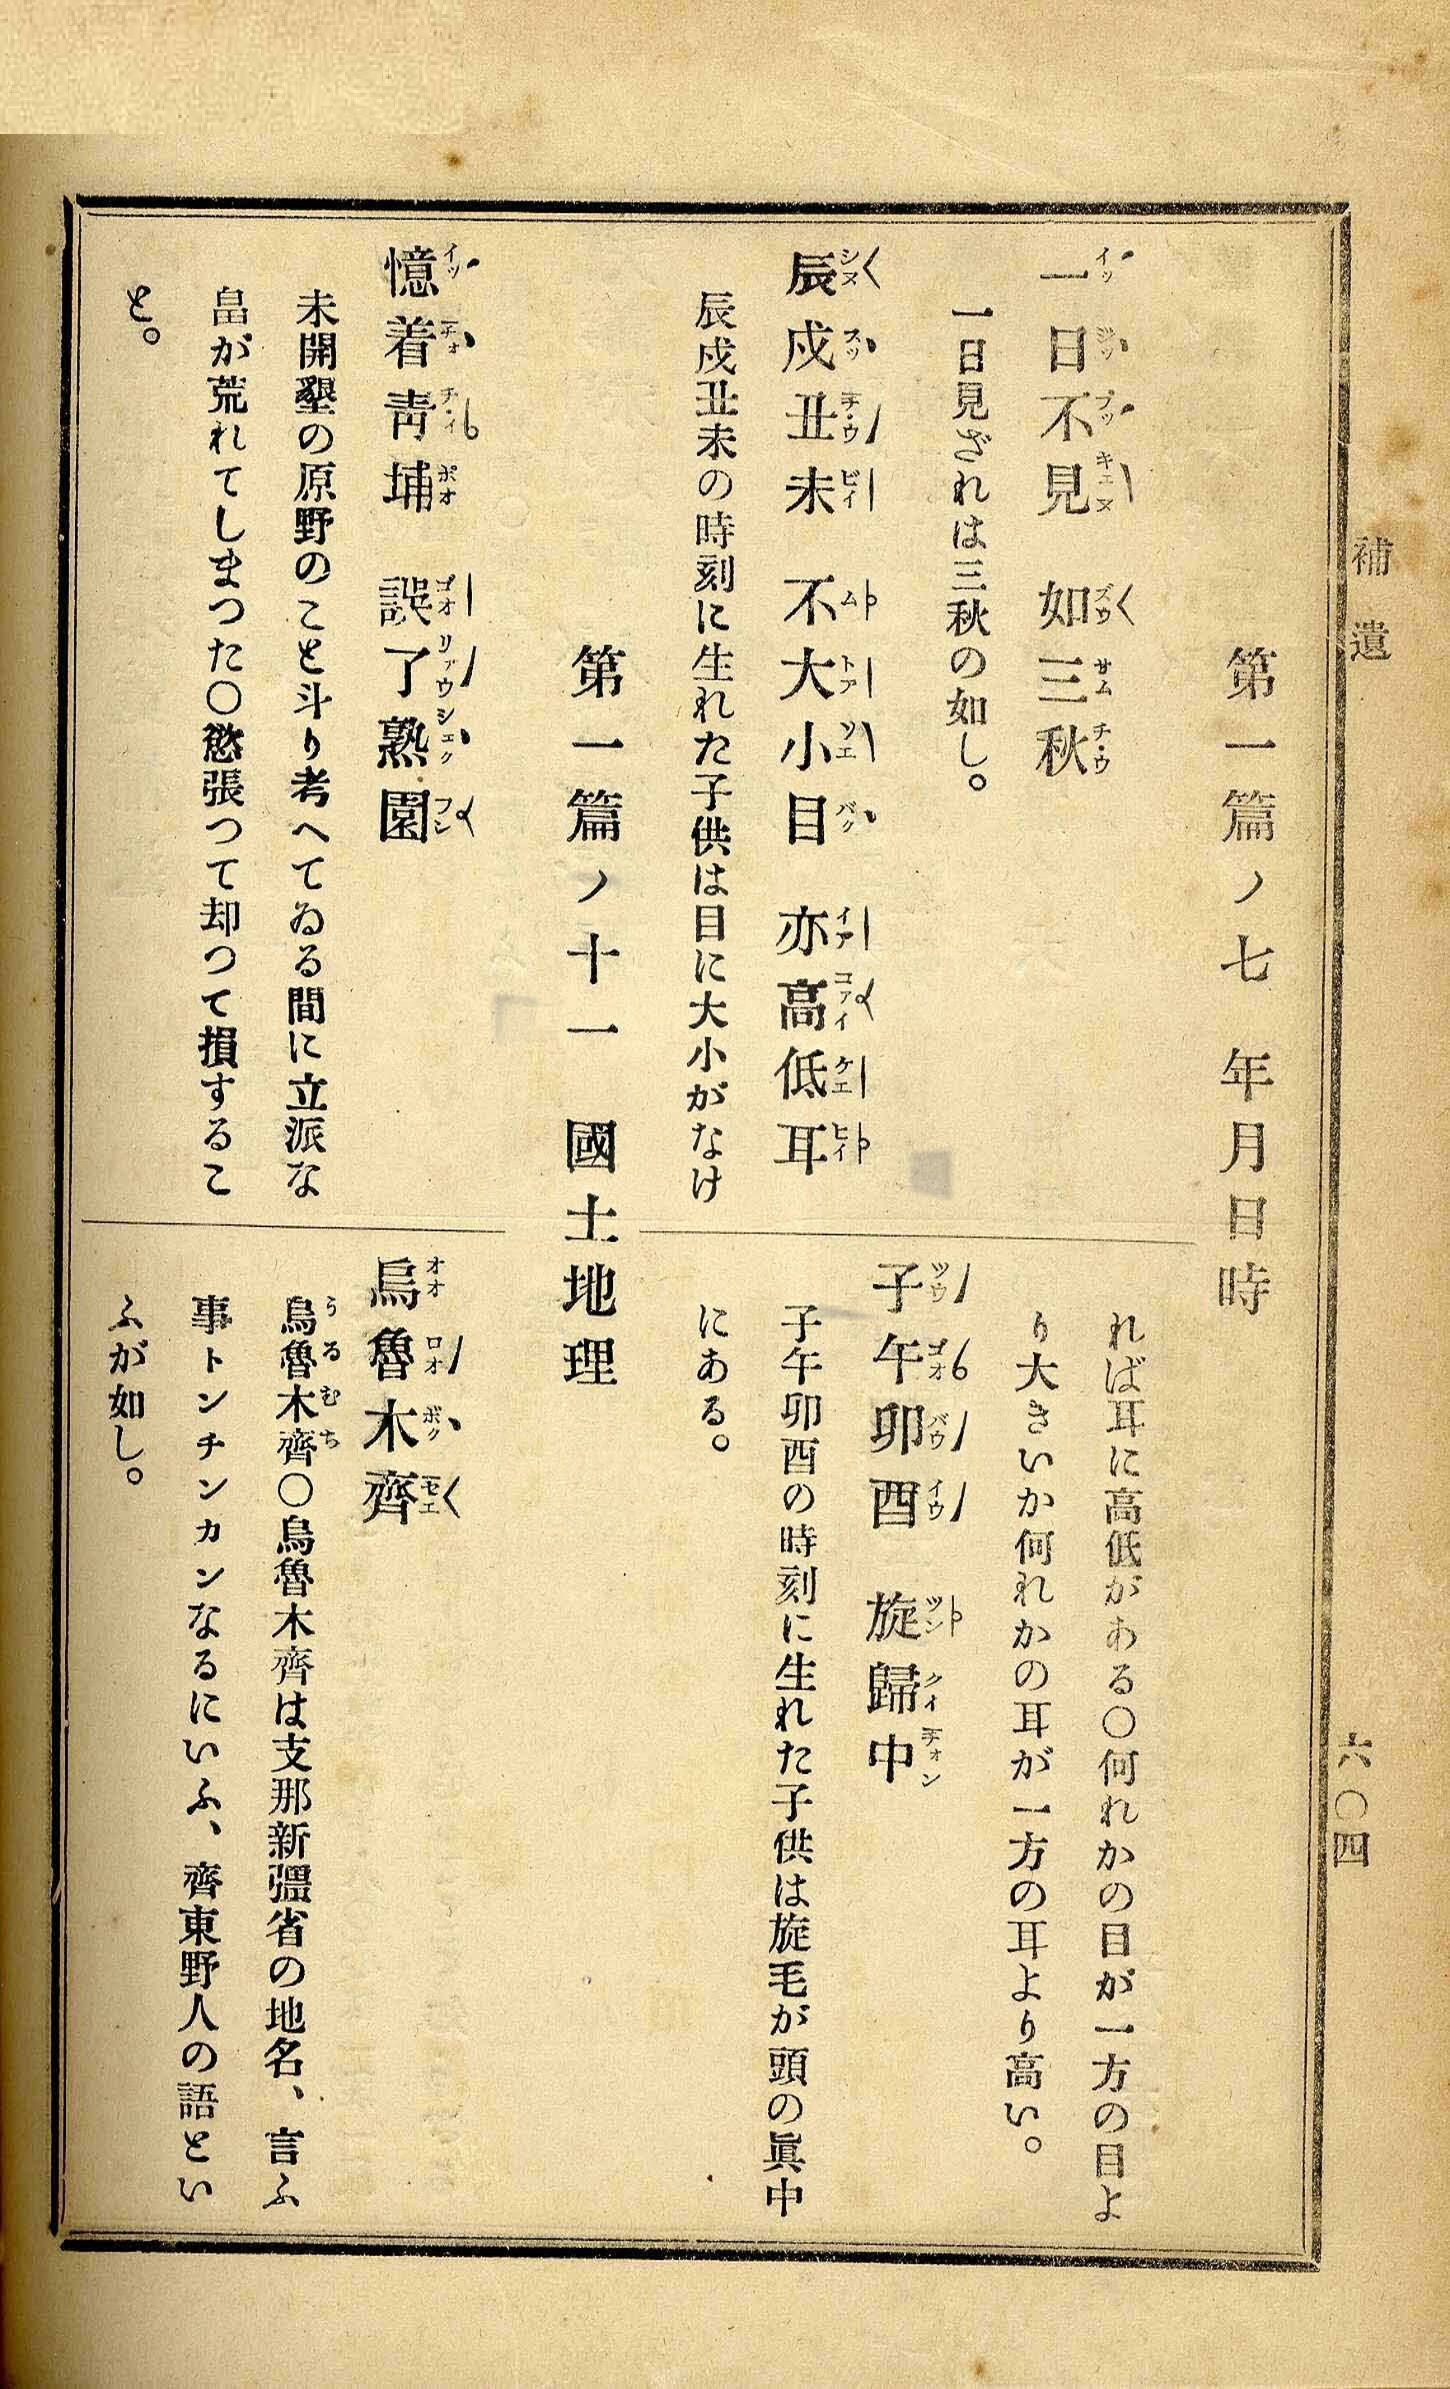 補遺
六〇四
第一篇ノ七 年月日時
一日不見 如三秋
一日見ざれは三秋の如し。
辰戌丑未 不大小目 亦高低耳
辰戌丑未の時刻に生れた子供は目に大小がなけ
れば耳に高低がある〇何れかの目が一方の目よ
り大きいか何れかの耳が一方の耳より高い。
子午卯酉 旋歸中
子午卯酉の時刻に生れた子供は旋毛が頭の眞中
にある。
第一篇ノ十一 國土地理
憶着靑埔 誤了熟園
未開墾の原野のこと斗り考へてゐる間に立派な
畠が荒れてしまつた〇慾張つて却つて損するこ
と。
烏魯木齊
烏魯木齊〇烏魯木齊は支那新疆省の地名、言ふ
事トンチンカンなるにいふ、齊東野人の語とい
ふが如し。